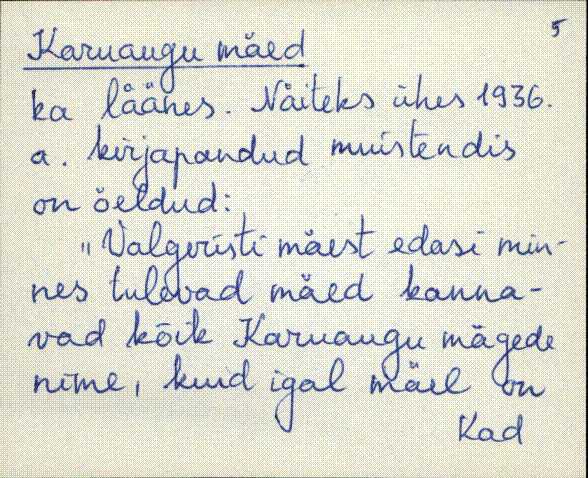 5
Karuaugu mäed
ka läänes. Näiteks ühes 1936.
a. kirjapandud muistendis
on öeldud:
"Valgeristi mäest edasi min-
nes tulevad mäed kanna-
vad kõik Karuaugu mägede
nime, kuid igal mäel on
Kad